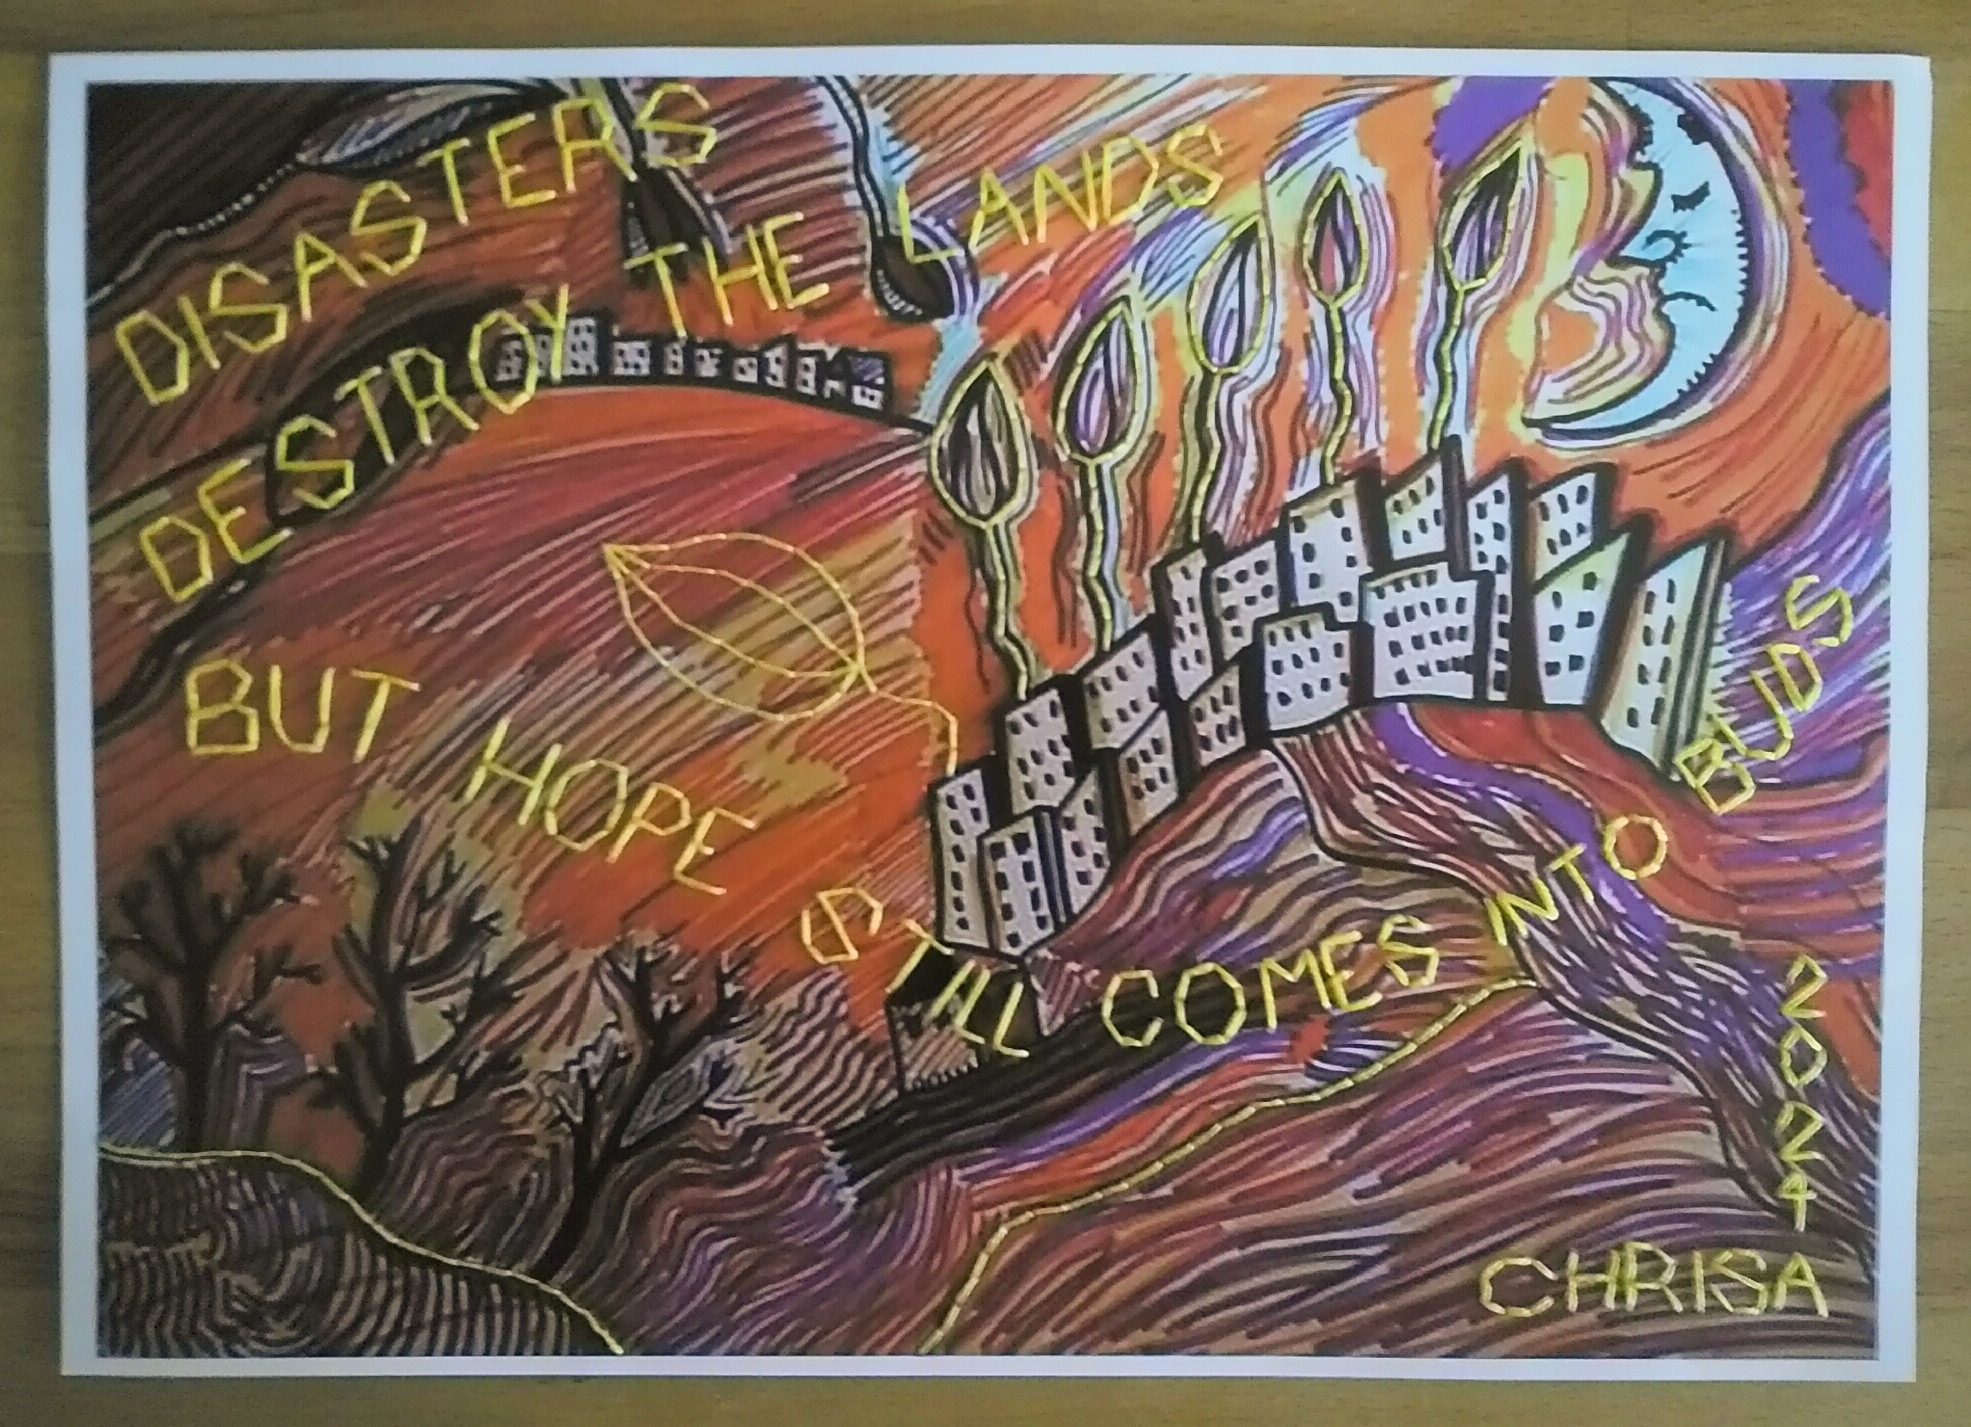 DISASTERS
DESTROY THE LANDS
BUT HOPE STILL COMES INTO BUDS
2024
CHRISA